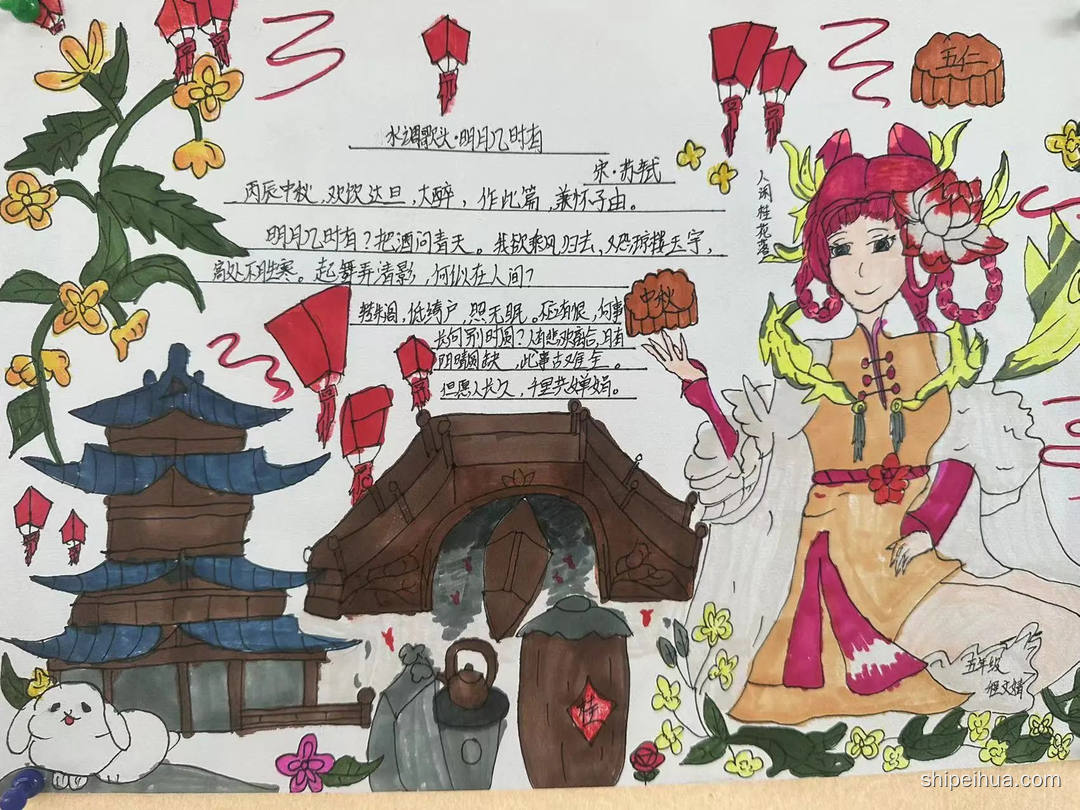 五仁
水调歌头·明月几时有
宋·苏轼
丙辰中秋，欢饮达旦，大醉，作此篇，兼怀子由。
明月几时有？把酒问青天。我欲乘风归去，又恐琼楼玉宇，
高处不胜寒。起舞弄清影，何似在人间？
转朱阁，低绮户，照无眠。不应有恨，何事
长向别时圆？人有悲欢离合，月有
阴晴圆缺，此事古难全。
但愿人长久，千里共婵娟。
中秋
人闲桂花落
桂
五年级
shipeihua.com